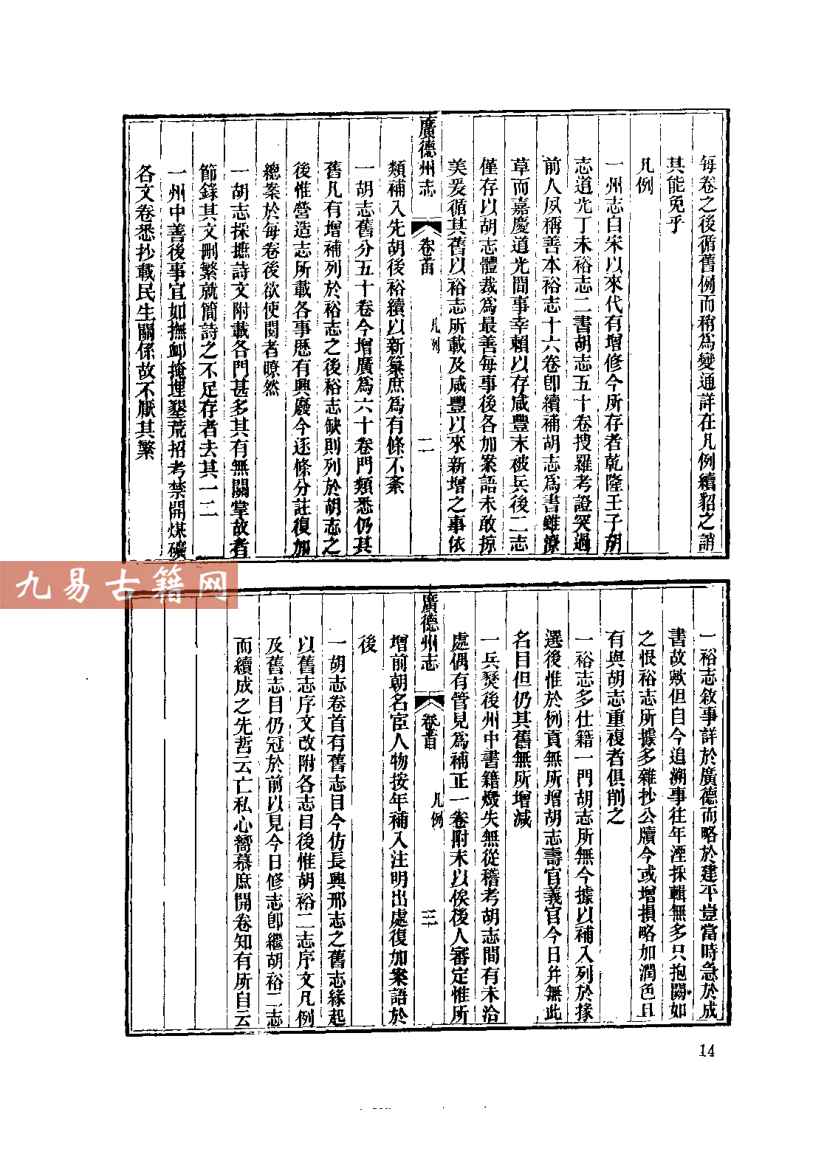 每卷之後循舊例而稍爲變通詳在凡例續貂之誚
其能免乎
凡例
一州志自宋以來代有增修今所存者乾隆壬子胡
志道光丁未裕志二書胡志五十卷搜羅考證突過
前人夙稱善本裕志十六卷卽續補胡志爲書雖潦
草而嘉慶道光間事幸賴以存咸豐末被兵後二志
僅存以胡志體裁爲最善每事後各加案語未敢掠
美爰循其舊以裕志所載及咸豐以來新增之事依
廣德州志 卷首 凡例 二
類補入先胡後裕續以新纂庶爲有條不紊
一胡志舊分五十卷今增廣爲六十卷門類悉仍其
舊凡有增補列於裕志之後裕志缺則列於胡志之
後惟營造志所載各事歷有興廢今逐條分註復加
總案於每卷後欲使閱者瞭然
一胡志採摭詩文附載各門甚多其有無關掌故者
節錄其文刪繁就簡詩之不足存者去其一二
一州中善後事宜如撫卹掩埋墾荒招考禁開煤礦
各文卷悉抄載民生關係故不厭其繁
一裕志敘事詳於廣德而略於建平豈當時急於成
書故歟但自今追溯事往年湮採輯無多只抱闕如
之恨裕志所據多雜抄公牘今或增損略加潤色且
有與胡志重複者俱削之
一裕志多仕籍一門胡志所無今據以補入列於掾
選後惟於例貢無所增胡志壽官義官今日幷無此
名目但仍其舊無所增減
一兵燹後州中書籍燬失無從稽考胡志間有未洽
處偶有管見爲補正一卷附末以俟後人審定惟所
廣德州志 卷首 凡例 三
增前朝名宦人物按年補入注明出處復加案語於
後
一胡志卷首有舊志目今仿長興邢志之舊志緣起
以舊志序文改附各志目後惟胡裕二志序文凡例
及舊志目仍冠於前以見今日修志卽繼胡裕二志
而續成之先哲云亡私心嚮慕庶開卷知有所自云
九易古籍网
14